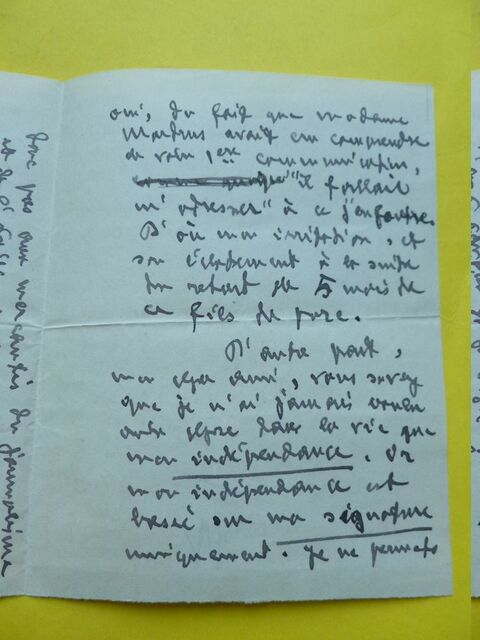 oui, du fait que madame
Mardrus avait cru comprendre
de votre 1ère communication,
qu'"il fallait
m'adresser" à ce j'enfoutre.
D'où mon irritation, et
son à la suite
du retard de 5 mois de
ce fils de porc.
D'autre part,
mon cher ami, vous savez
que je n'ai jamais voulu
autre chose dans la vie que
mon indépendance. Or
mon indépendance est
basé sur ma signature
uniquement. Je ne permets
donc pas aux mercantis du journalisme
et de l'